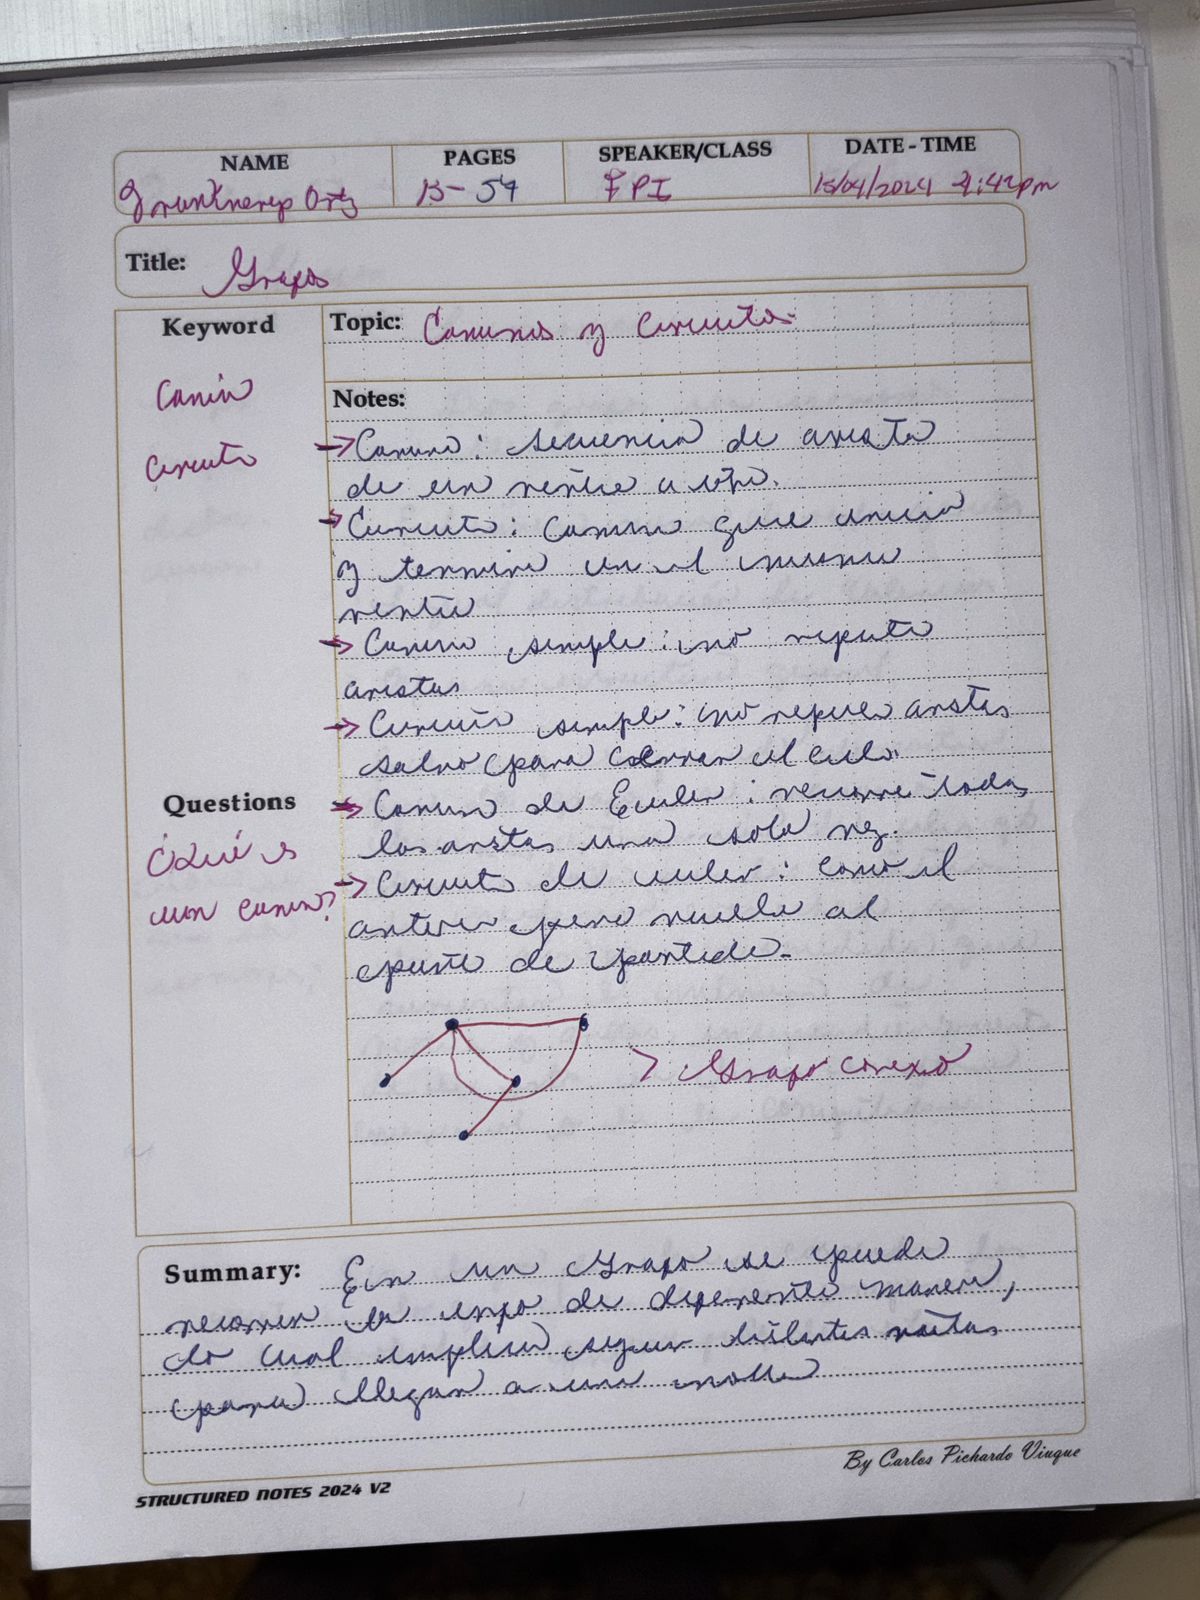 NAME
PAGES
SPEAKER/CLASS
DATE - TIME
15- 54
FPI
15/04/2024 4:42pm
Title: Grafos
Keyword
Topic: Caminos y Circuitos
Camino
Circuito
Notes:
→ Camino: secuencia de arista
de un vertice a otro.
→ Circuito: camino que inicia
y termina en el mismo
vertice
→ Camino simple: no repite
aristas
→ Circuito simple: no repite aristas
salvo para cerrar el ciclo.
Questions
→ Camino de Euler: recorre todas
las aristas una sola vez.
¿Qué es
un camino?
→ Circuito de euler: como el
anterior pero vuelve al
punto de partida.
> Grafo conexo
Summary: En un Grafo se puede
recorrer de diferente manera,
lo cual implica seguir distintas rutas
para llegar a una
By Carlos Pichardo Viuque
STRUCTURED NOTES 2024 V2